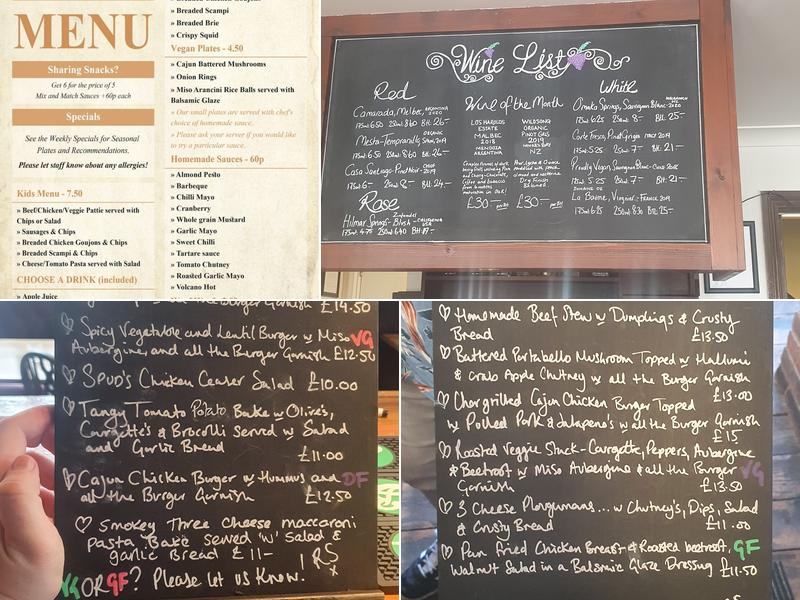 MENU
Sharing Snacks?
Get 6 for the price of 5
Mix and Match Sauces +60p each
Specials
See the Weekly Specials for Seasonal
Plates and Recommendations.
Please let staff know about any allergies!
Kids Menu - 7.50
» Beef/Chicken/Veggie Pattie served with
Chips or Salad
» Sausages & Chips
» Breaded Chicken Goujons & Chips
» Breaded Scampi & Chips
» Cheese/Tomato Pasta served with Salad
CHOOSE A DRINK (included)
» Apple Juice
» Breaded Scampi
» Breaded Brie
» Crispy Squid
Vegan Plates - 4.50
» Cajun Battered Mushrooms
» Onion Rings
» Miso Arancini Rice Balls served with
Balsamic Glaze
» Our small plates are served with chef's
choice of homemade sauce.
» Please ask your server if you would like
to try a particular sauce.
Homemade Sauces - 60p
» Almond Pesto
» Barbeque
» Chilli Mayo
» Cranberry
» Whole grain Mustard
» Garlic Mayo
» Sweet Chilli
» Tartare sauce
» Tomato Chutney
» Roasted Garlic Mayo
» Volcano Hot
Wine List
Red
Camarada, Malbec, ARGENTINA 2020
175ml 6.50 250ml 8.60 Btl 26-
ORGANIC
Mesta-Tempranillo, Spain, 2019
175ml 6.50 250ml 8.60 Btl 26-
Casa Santiago-Pinot Noir- CHILE
175ml 6- 250ml 8- Btl 24-
Rose
Zinfandel
Hilmar Springs- Blush - CALIFORNIA
175ml 4.75 250ml 6.40 Btl 19-
Wine of the Month
LOS HAROLDOS
ESTATE
MALBEC
2018
MENDOZA
ARGENTINA
£30-
WILDSONG
ORGANIC
PINOT GRIS
2019
HAWKES BAY
NZ
£30-
White
Sauvignon Blanc-2020
175ml 6.25 250ml 8- Btl 25-
Corte Fresca, Pinot Grigio ITALY 2019
175ml 5.25 250ml 7- Btl 21-
Proudly Vegan, Sauvignon Blanc-
175ml 5.25 250ml 7- Btl 21-
La Baume, Viognier - FRANCE 2019
175ml 6.25 250ml 8.30 Btl 25-
the Burger Garnish £14.50
Spicy Vegetable and Lentil Burger w Miso VG
Aubergine and all the Burger Garnish £12.50
Spud's Chicken Ceaser Salad £10.00
Tangy Tomato Potato Bake w Olives,
Courgette's & Brocolli served w Salad
and Garlic Bread
£11.00
Cajun Chicken Burger w Hummus and DF
all the Burger Garnish £12.50
Smokey Three Cheese maccaroni
pasta Bake served 'w' Salad &
garlic Bread £11-
VG OR GF? Please let us know. RS x
Homemade Beef Stew w Dumplings & Crusty
Bread £13.50
Battered Portabello Mushroom Topped w Hallumi
& Crab Apple Chutney w all the Burger Garnish
£13.00
Chargrilled Cajun Chicken Burger Topped
w Pulled Pork & Jalapeno's w all the Burger Garnish
£15
Roasted Veggie Stack-Courgette, Peppers, Aubergine
& Beetroot w Miso Aubergine & all the Burger VG
Garnish £13.50
3 Cheese Ploughmans... w Chutney's, Dips, Salad
& Crusty Bread £11.00
Pan Fried Chicken Breast & Roasted beetroot, GF
Walnut Salad in a Balsmic Glaze Dressing £11.50